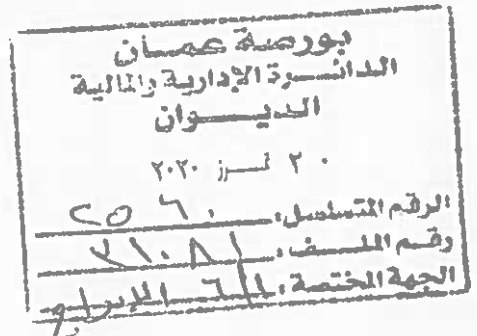 بورصة عمان
الدائرة الإدارية والمالية
الديوان
٢٠ تموز ٢٠٢٠
الرقم المتسلسل: ٢٥٦٠
رقم الملف:
الجهة المختصة: